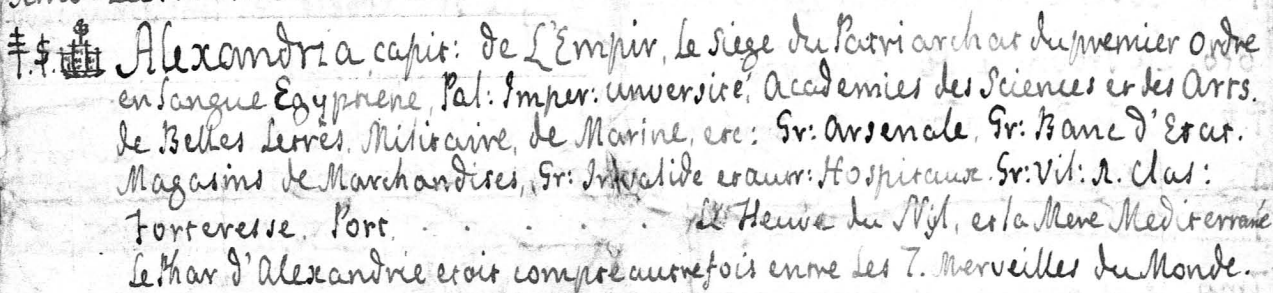 ‡. $. Alexandria capit: de L'Empir, Le Siege du Patriarchat du premier Ordre
en Langue Egyptiene, Pal: Imper: Unversité, Academies des Sciences et des Arts.
de Belles Letrès, Militaire, de Marine, etc: Gr: Arsenale, Gr: Banc d'Etat.
Magasins de Marchandises, Gr: Invalide et autr: Hospitaux. Gr: Vil: Clas:
Forteresse. Port. . . . . . Le Fleuve du Nyl, et la Mere Mediterrané
Le Phar d'Alexandrie etoit compté autrefois entre Les 7. Merveilles du Monde.